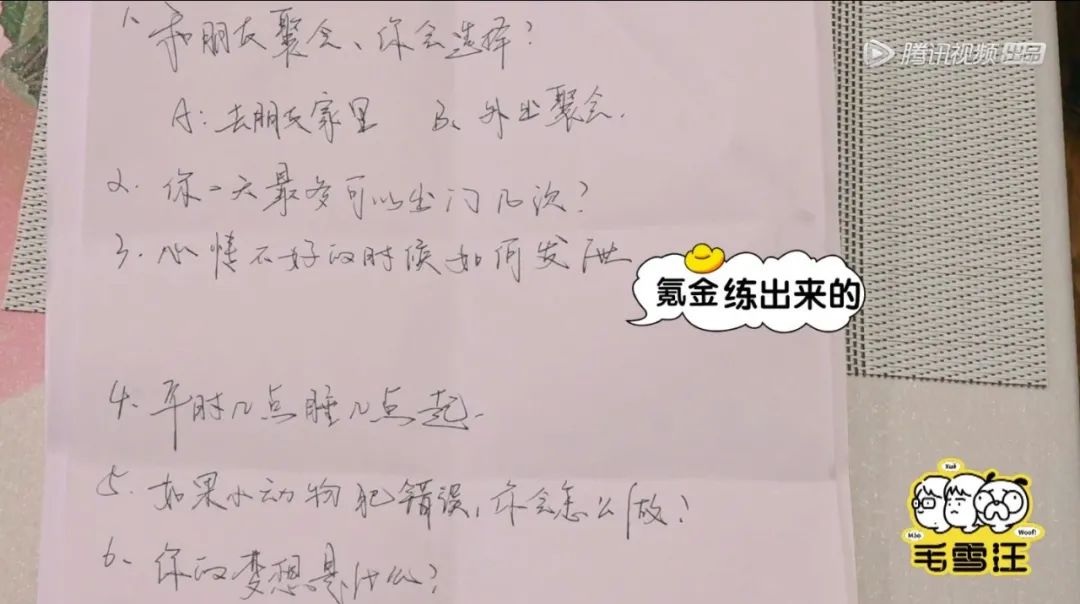 1. 和朋友聚会、你会选择?
腾讯视频 出品
A: 去朋友家里 B、外出聚会.
2. 你一天最多可以出门几次?
3. 心情不好的时候如何发泄
氪金练出来的
4. 平时几点睡几点起.
5. 如果小动物犯错误, 你会怎么做?
6. 你的梦想是什么?
Yuk!
Miao
Woof!
毛雪汪